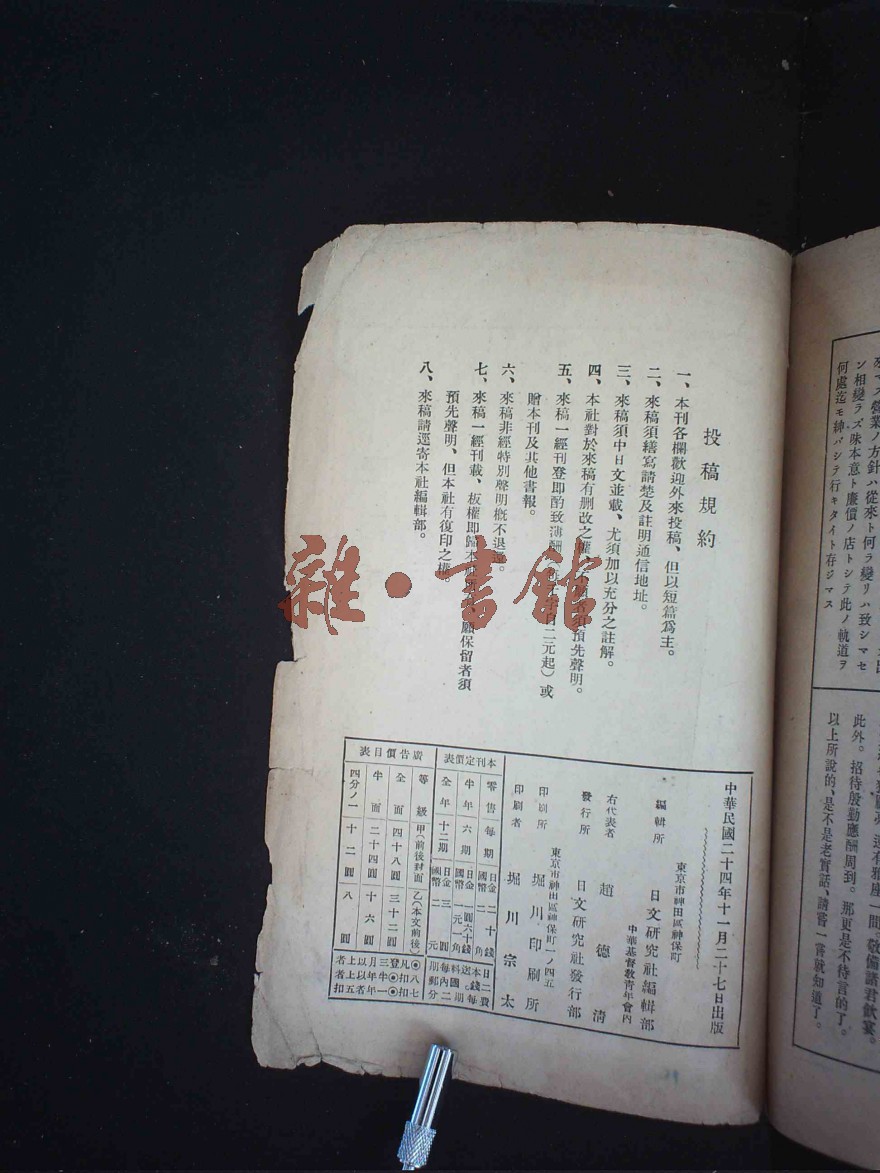 殃マス營業ノ方針ハ從來ト何ラ變リハ致シマセ
ン相變ラズ味本意ト廉價ノ店トシテ此ノ軌道ヲ
何處迄モ紳バシテ行キタイト存ジマス
還有雅座一間、敬備諸君飲宴。
此外。招待殷勤應酬周到。那更是不待言的了。
以上所說的、是不是老實話、請嘗一嘗就知道了。
投稿規約
一、本刊各欄歡迎外來投稿、但以短篇爲主。
二、來稿須繕寫請楚及註明通信地址。
三、來稿須中日文並載、尤須加以充分之註解。
四、本社對於來稿有删改之權、不願者須預先聲明。
五、來稿一經刊登即酌致薄酬
日二元起）或
贈本刊及其他書報。
六、來稿非經特別聲明概不退還。
七、來稿一經刊載、板權即歸本
願保留者須
預先聲明、但本社有復印之權
八、來稿請逕寄本社編輯部。
中華民國二十四年十一月二十七日出版
東京市神田區神保町
編輯所 日文研究社編輯部
中華基督敎青年會內
右代表者 趙德清
發行所 日文硏究社發行部
東京市神田區神保町一ノ四五
印刷所 堀川印刷所
印刷者 堀川宗太
本刊定價表
零售每期 日金二十錢 國幣二角
半年六期 日金一圓六十錢 國幣一元一角
全年十二期 日金三圓 國幣二元
日本每期送料二錢國內每期郵費二分
廣告價目表
等級 甲（前後封面） 乙（本文前後）
全面 四十八圓 三十二圓
半面 二十四圓 十六圓
四分ノ一 十二圓 八圓
◉凡登三月以上者八扣◉半年以上者七扣◉一年以上者五扣
雜·書館